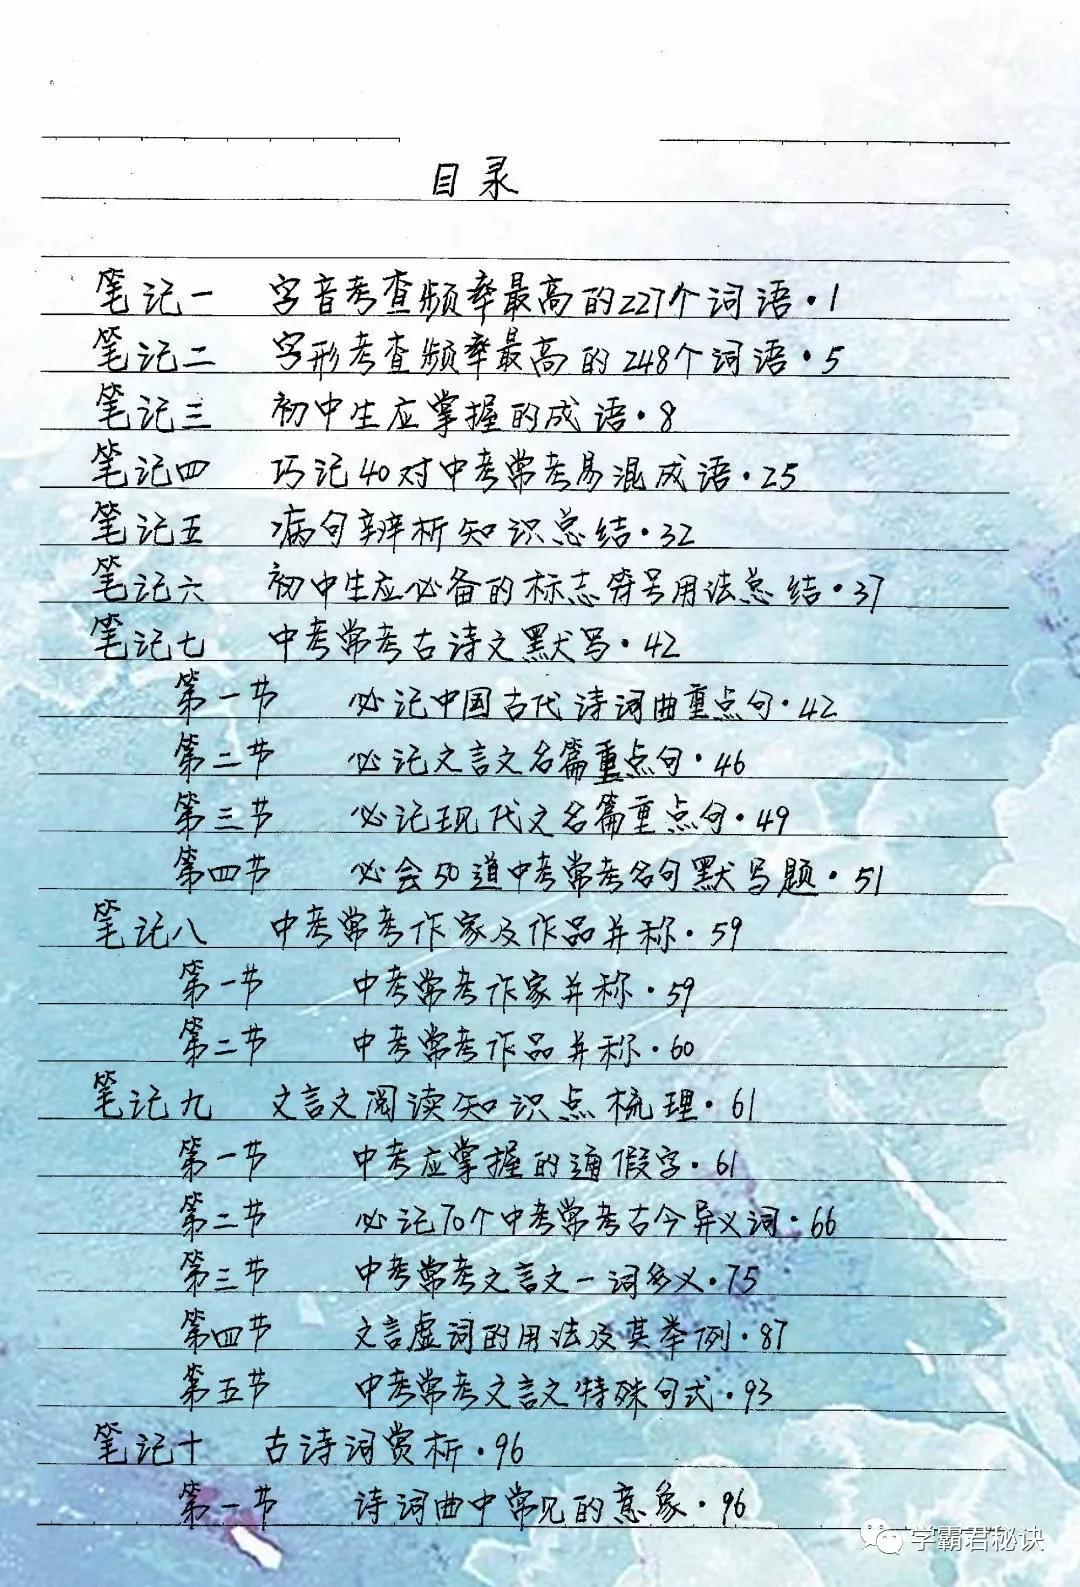 目录
笔记一 字音考查频率最高的227个词语·1
笔记二 字形考查频率最高的248个词语·5
笔记三 初中生应掌握的成语·8
笔记四 巧记40对中考常考易混成语·25
笔记五 病句辨析知识总结·32
笔记六 初中生应必备的标志符号用法总结·37
笔记七 中考常考古诗文默写·42
第一节 必记中国古代诗词曲重点句·42
第二节 必记文言文名篇重点句·46
第三节 必记现代文名篇重点句·49
第四节 必会50道中考常考名句默写题·51
笔记八 中考常考作家及作品并称·59
第一节 中考常考作家并称·59
第二节 中考常考作品并称·60
笔记九 文言文阅读知识点梳理·61
第一节 中考应掌握的通假字·61
第二节 必记70个中考常考古今异义词·66
第三节 中考常考文言文一词多义·75
第四节 文言虚词的用法及其举例·87
第五节 中考常考文言文特殊句式·93
笔记十 古诗词赏析·96
第一节 诗词曲中常见的意象·96
学霸君秘诀